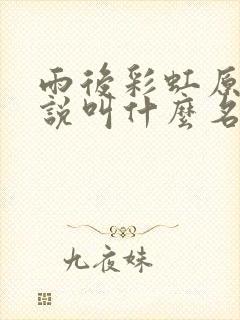 雨後彩虹原
說叫什麼名
九夜妹